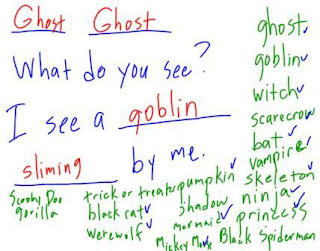 Ghost Ghost
What do you see?
I see a goblin
sliming by me.
ghost
goblin
witch
scarecrow
bat
vampire
skeleton
ninja
princess
Black Spiderman
Scooby Doo
gorilla
trick or treater
black cat
werewolf
pumpkin
shadow
mermaid
Mickey Mouse